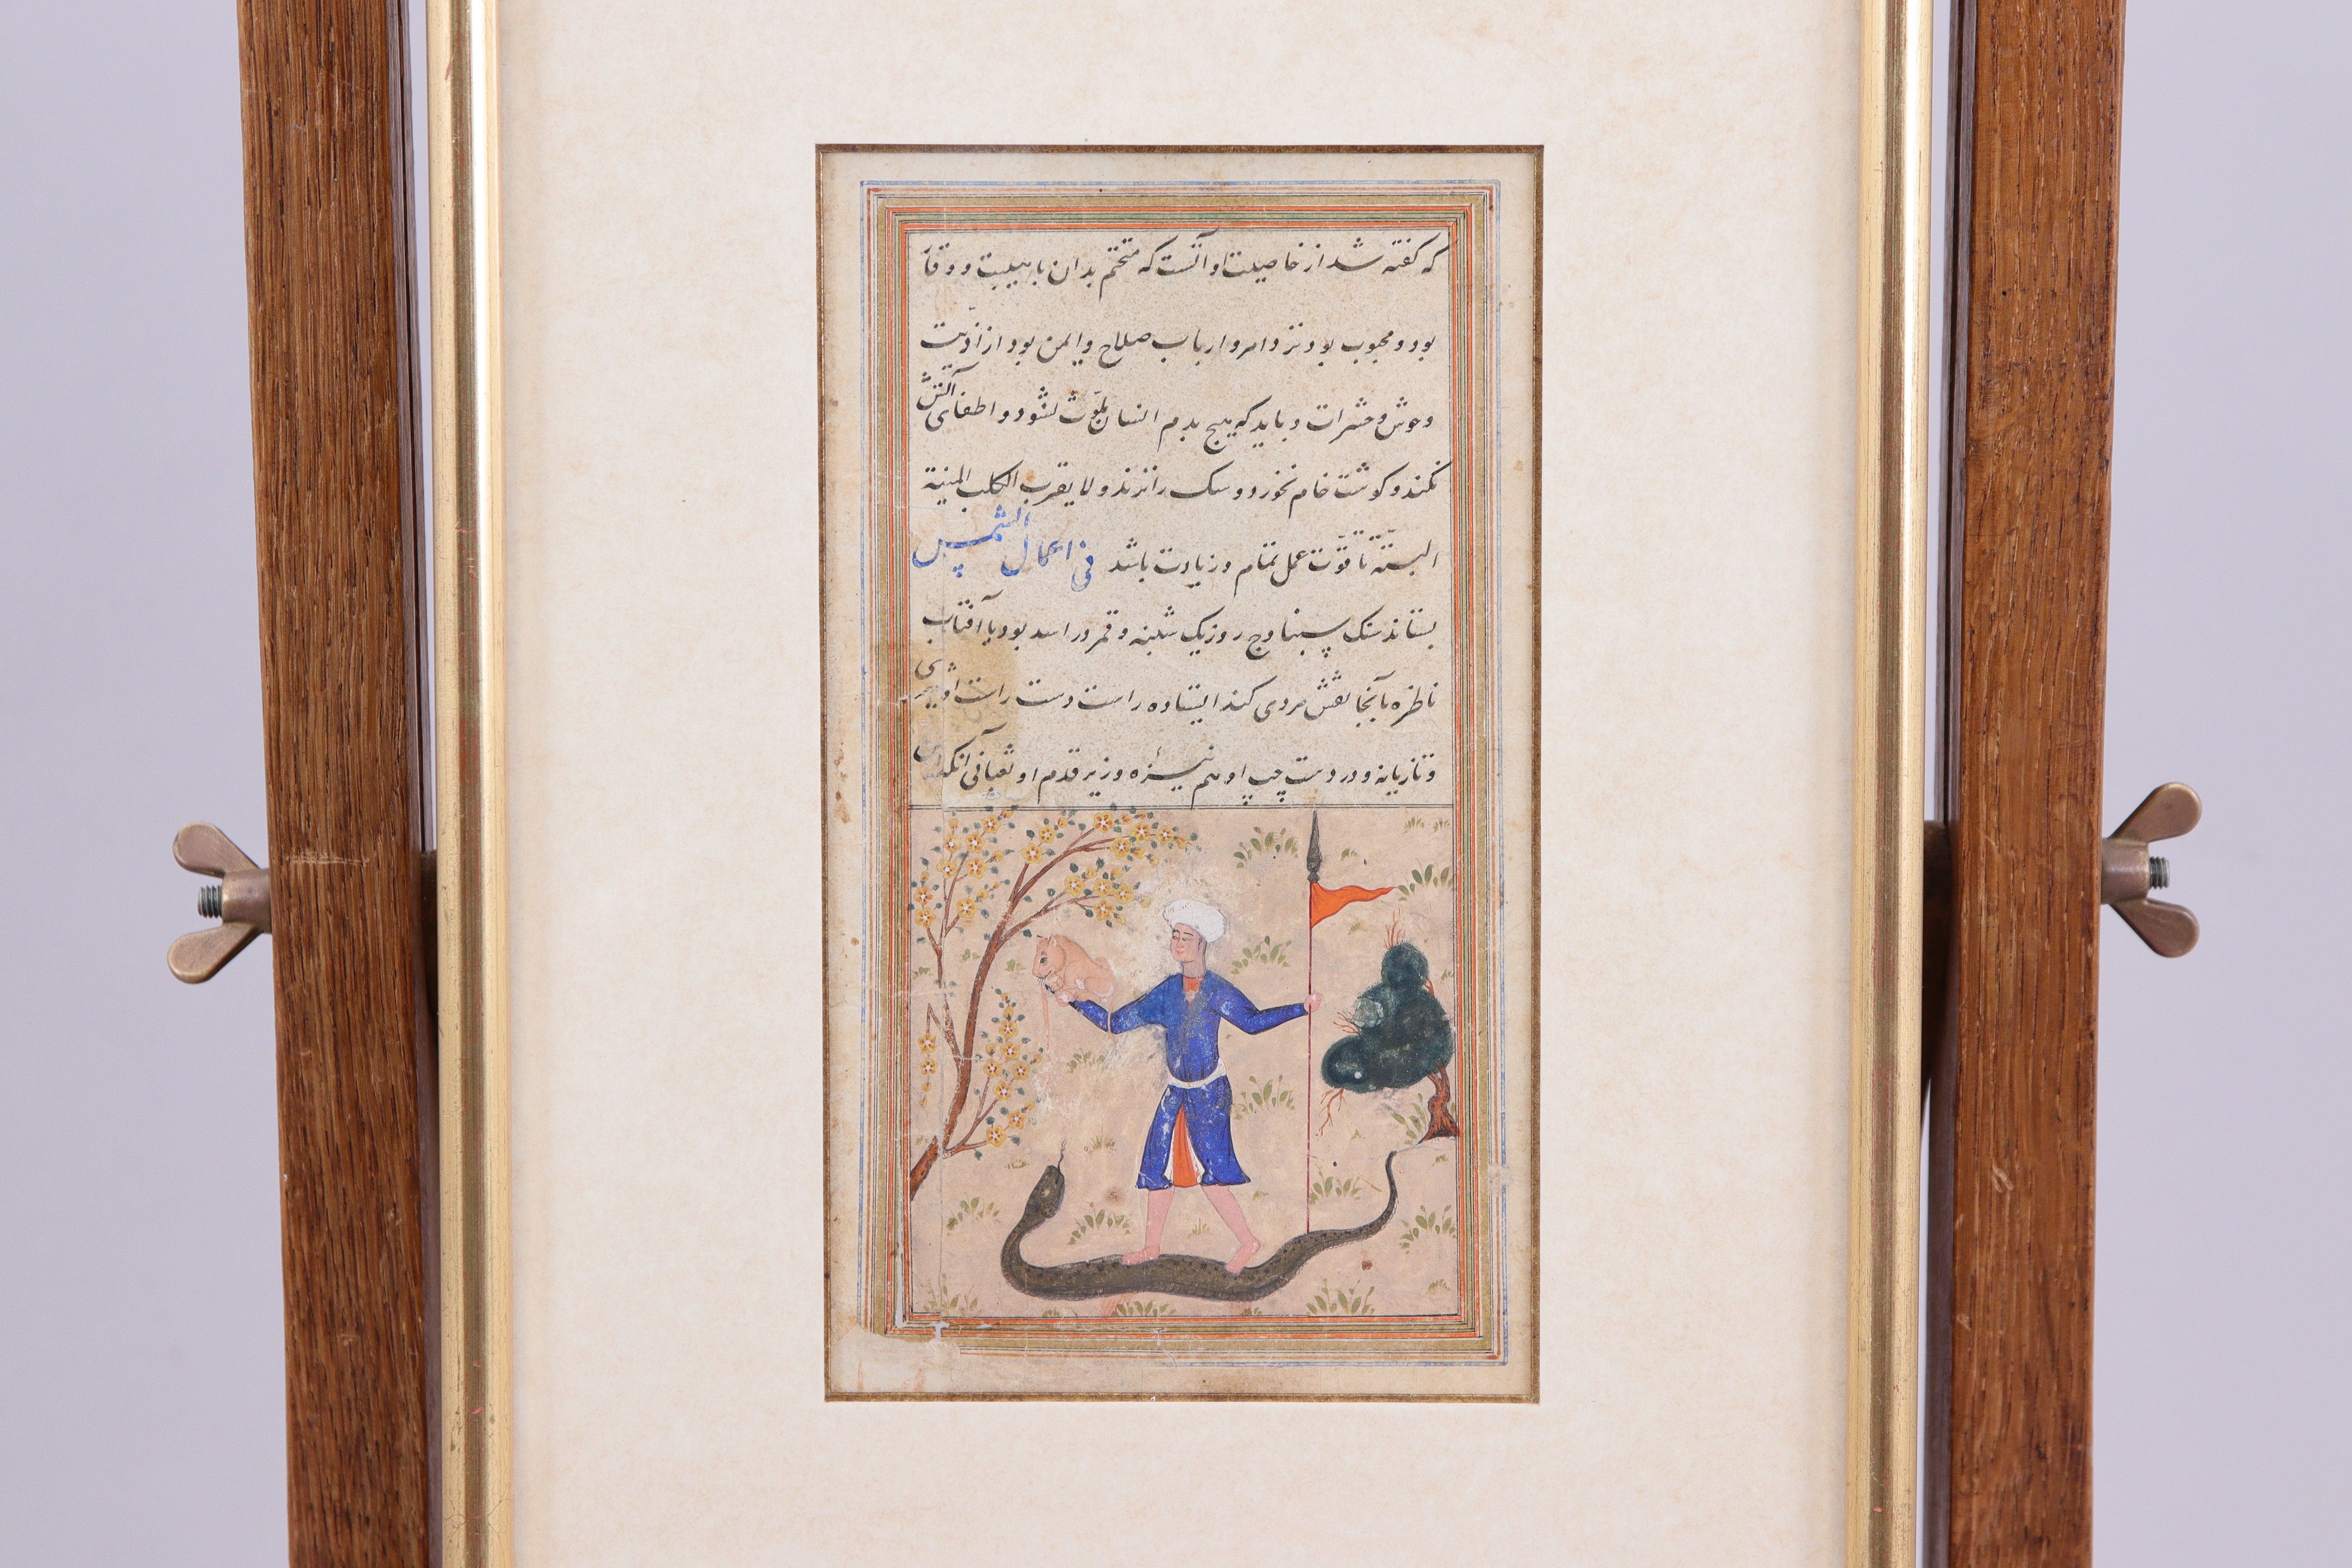 که کفته شد از خاصیت او آنست که متختم بدان با هیبت و وقار
بود و محبوب بود نزد امرا و ارباب صلاح و ایمن بود از اذیت
وحوش و حشرات و باید که هیچ بدم انسان ملوث نشود و اطفای آتش
نکند و کوشت خام نخورد و سک را نزند ولا یقرب الکلب المنیة
البتة تا قوت عمل تمام و زیادت باشد فی اعمال الشمس
بستاند سنک روز یک شنبه و قمر در اسد بود با آفتاب
ناظر بآنجا نقش مردی کند ایستاده راست دست راست او شیری
و تازیانه و در دست چپ او هم نیزه و زیر قدم او ثعبانی